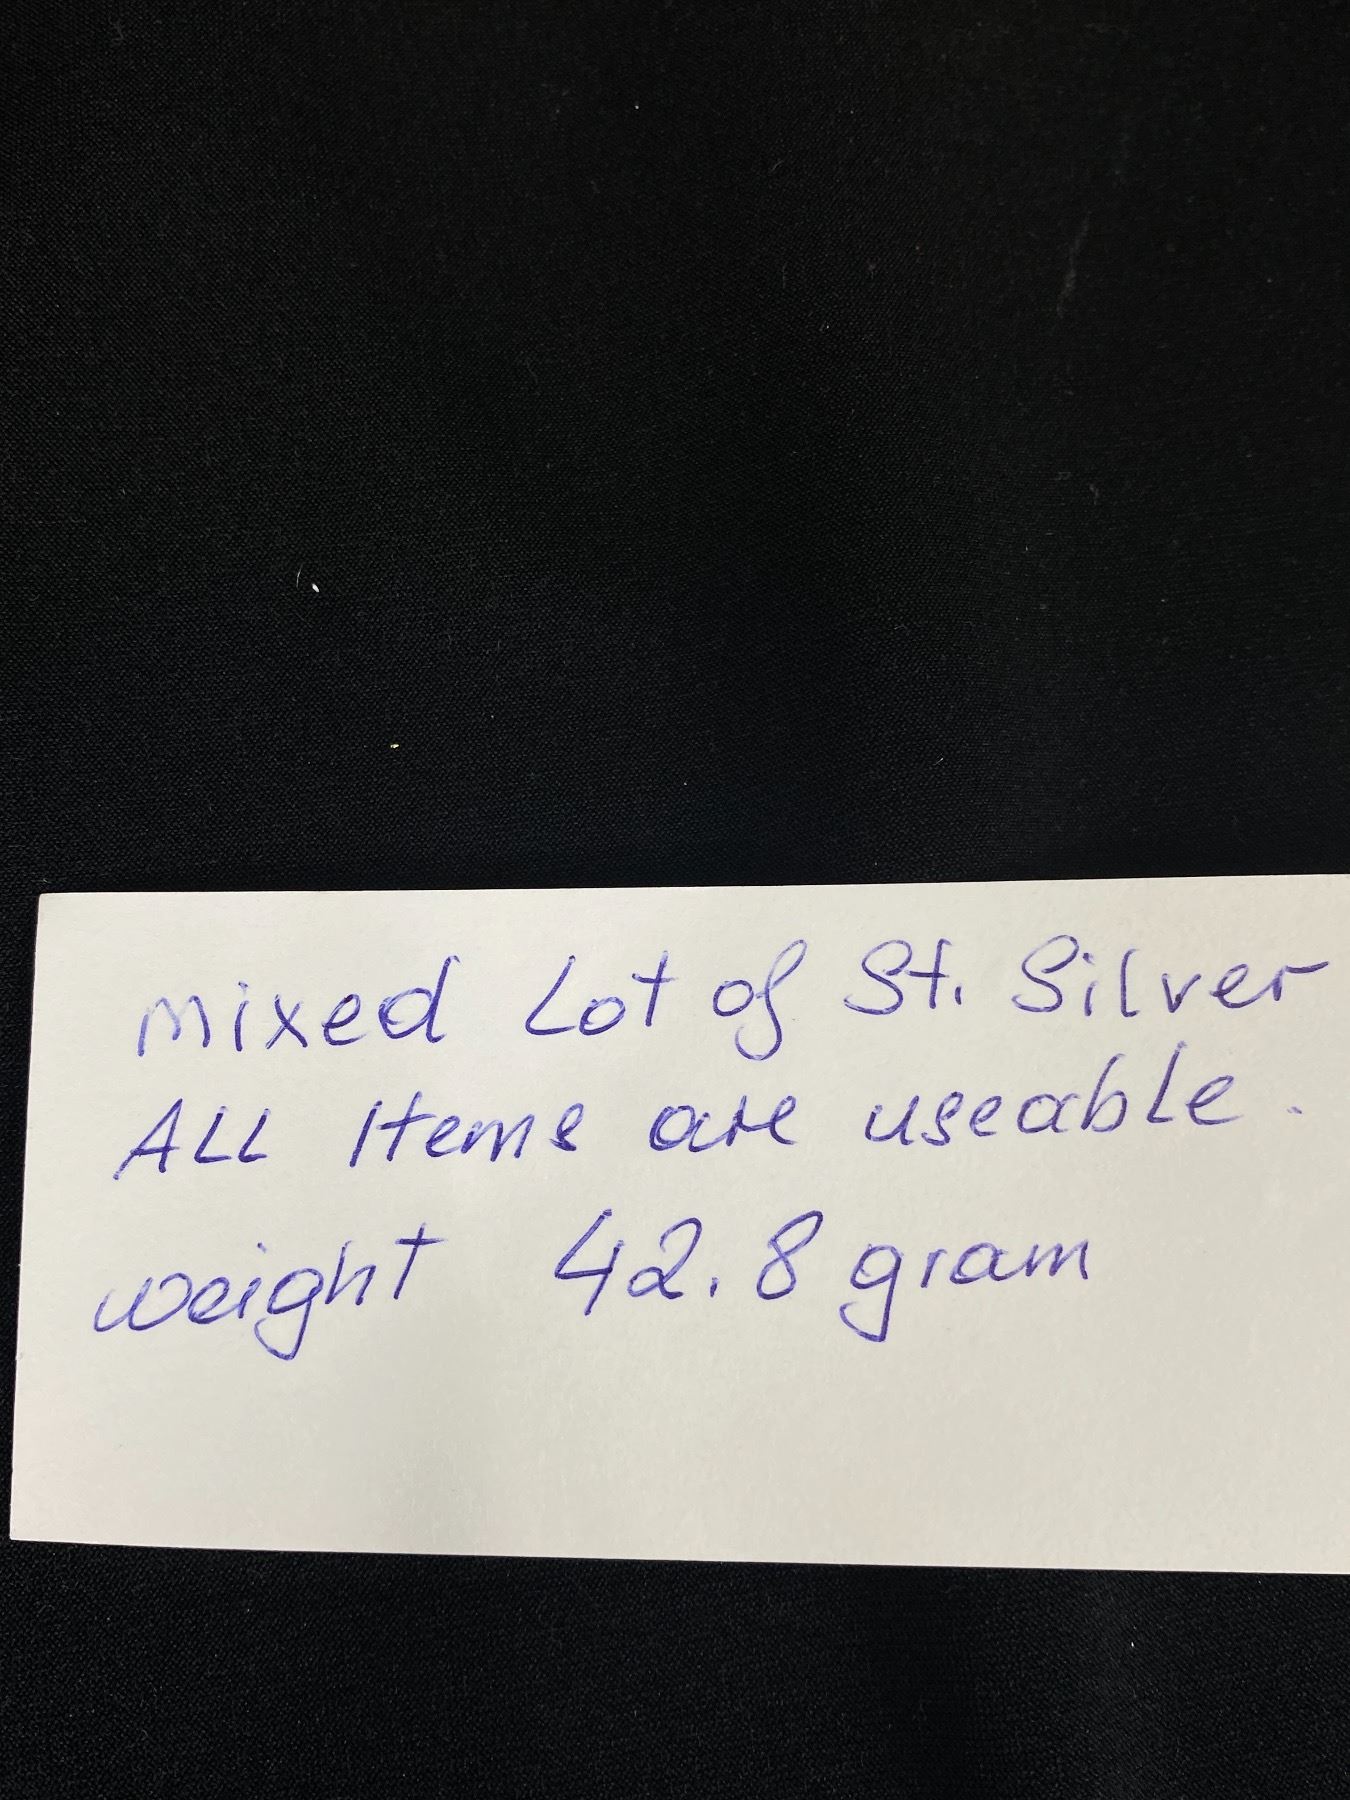 mixed Lot of St. Silver
ALL Items are useable.
weight 42.8 gram